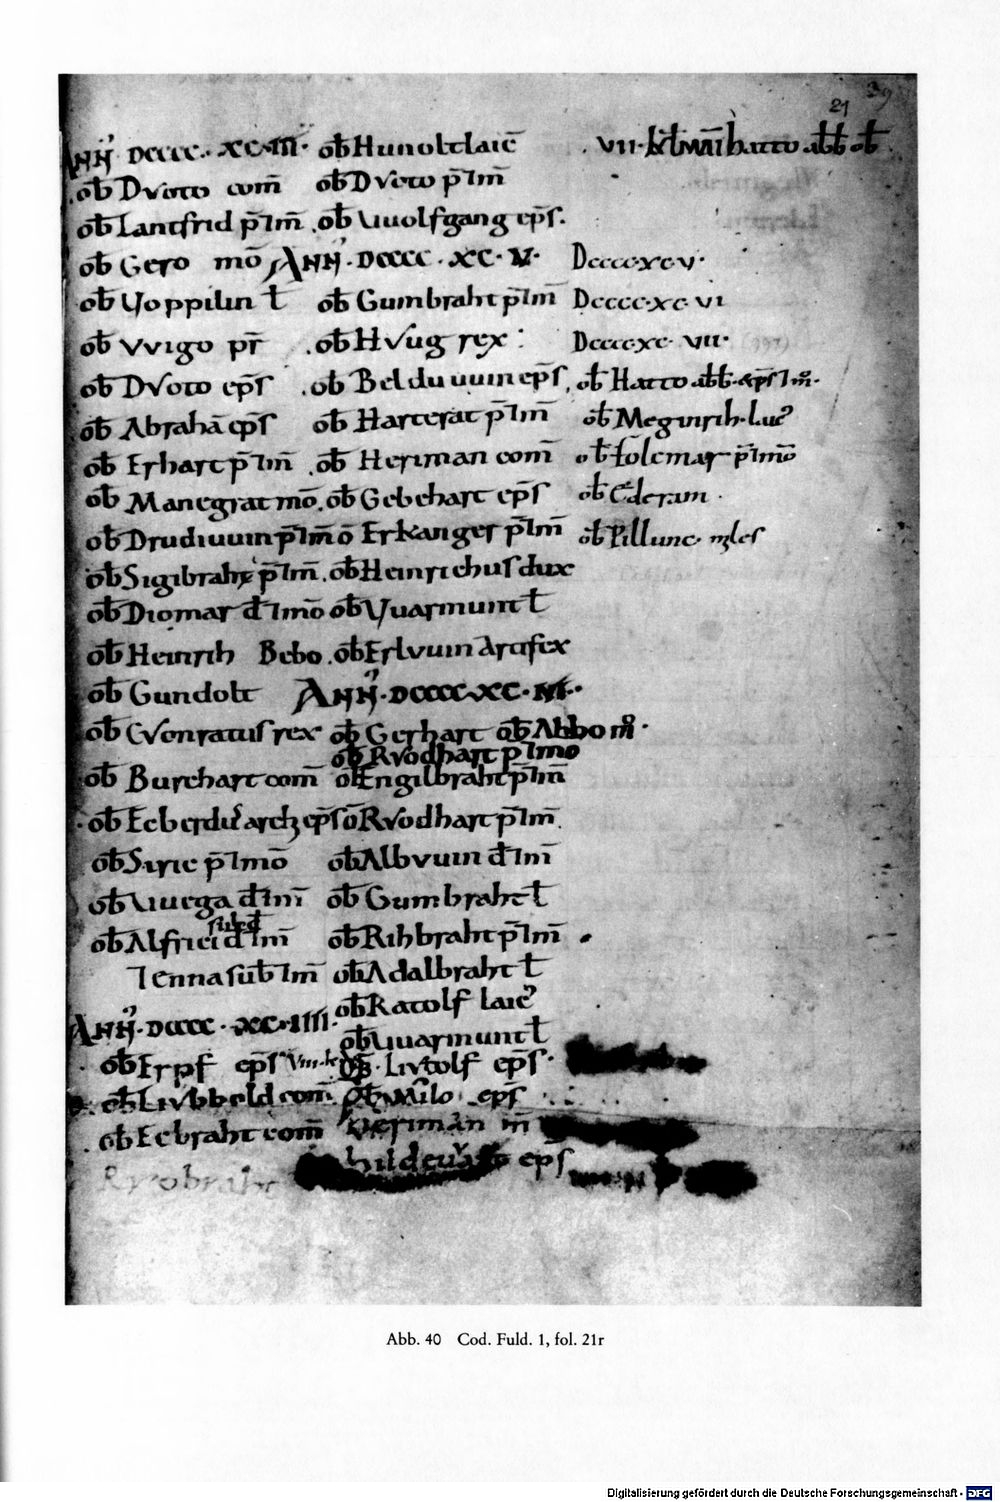 21
39
Anñ DCCCC · XC · III ·
ob̄ Dvoto com̄
ob̄ Lantfrid p̄ 7 m̄
ob̄ Gero mō
ob̄ Voppilin t̄
ob̄ VVigo pr̄
ob̄ Dvoto ep̄s
ob̄ Abrahā ep̄s
ob̄ Erhart p̄ 7 m̄
ob̄ Manegrat mō
ob̄ Drudiuuin p̄ 7 m̄
ob̄ Sigibraht p̄ 7 m̄
ob̄ Diomar d̄ 7 mō
ob̄ Heinrih Bebo
ob̄ Gundolt
ob̄ Cvonratus rex
ob̄ Burchart com̄
ob̄ Ecberdus arch ep̄s
ob̄ Siric p̄ 7 mō
ob̄ Uuega d̄ 7 m̄
ob̄ Alfrici d̄ 7 m̄
7 Enna sub̄ 7 m̄
Anñ · DCCCC · XC · IIII ·
ob̄ Erpf ep̄s
ob̄ Livbbold com̄
ob̄ Ecbraht com̄
Rvobraht
ob̄ Hunolt laic̄
ob̄ Dvoto p̄ 7 m̄
ob̄ Uuolfgang ep̄s
Anñ · DCCCC · XC · V ·
ob̄ Gumbraht p̄ 7 m̄
ob̄ Hvug rex
ob̄ Belduuuin ep̄s
ob̄ Harterat p̄ 7 m̄
ob̄ Heriman com̄
ob̄ Gebehart ep̄s
ō Erkanger p̄ 7 m̄
ob̄ Heinrichus dux
ob̄ Vuarmunt t̄
ob̄ Erlvuin Artifex
Anñ · DCCCC · XC · VI ·
ob̄ Gerhart ob̄ Abbo m̊
ob̄ Rvodhart p̄ 7 mo
ob̄ Engilbraht p̄ 7 m̄
ō Rvodhart p̄ 7 m̄
ob̄ Albvuin d̄ 7 m̄
ob̄ Gumbraht t̄
ob̄ Rihbraht p̄ 7 m̄
ob̄ Adalbraht t̄
ob̄ Ratolf laic̄
ob̄ Uuarmunt t̄
ob̄ Livtolf ep̄s
ob̄ Milo ep̄s
Heriman m̄
ep̄s
VII · kl̄ mai hatto abb̄ ob̄
DCCCC · XC · V ·
DCCCC · XC · VI
DCCCC · XC · VII ·
ob̄ Hatto abb̄ & p̄s 7 m̊
ob̄ Meginrih · laic̄
ob̄ folcmar p̄ 7 mō
ob̄ Ederam
ob̄ Pillunc · miles
Abb. 40 Cod. Fuld. 1, fol. 21r
Digitalisierung gefördert durch die Deutsche Forschungsgemeinschaft - DFG